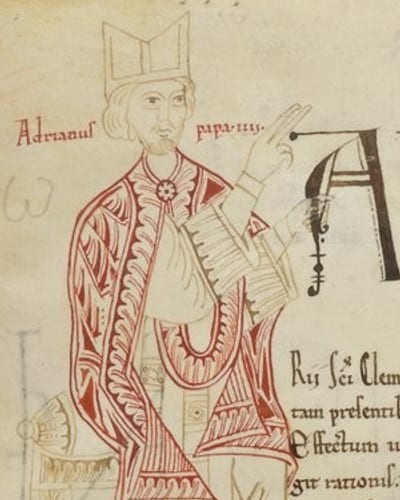 Adrianus papa·iiij·
A
Rij Sc̄i Clem
tam presenti
Effectum u
git rationis.